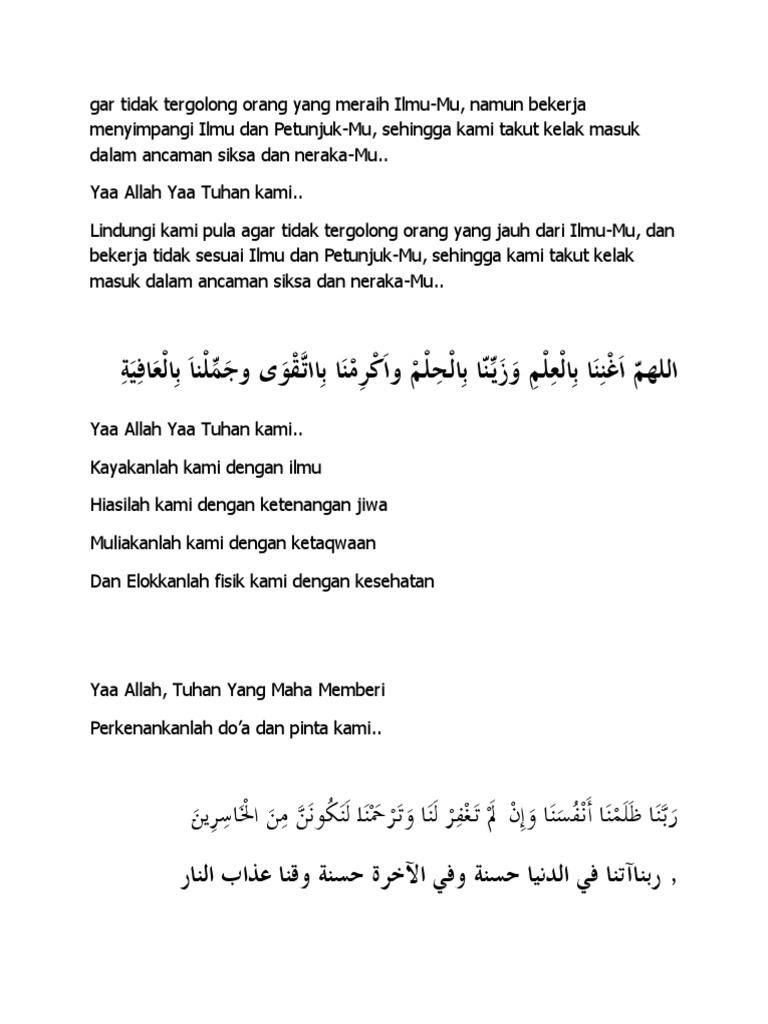 gar tidak tergolong orang yang meraih Ilmu-Mu, namun bekerja
menyimpangi Ilmu dan Petunjuk-Mu, sehingga kami takut kelak masuk
dalam ancaman siksa dan neraka-Mu..
Yaa Allah Yaa Tuhan kami..
Lindungi kami pula agar tidak tergolong orang yang jauh dari Ilmu-Mu, dan
bekerja tidak sesuai Ilmu dan Petunjuk-Mu, sehingga kami takut kelak
masuk dalam ancaman siksa dan neraka-Mu..
اللهمّ اَغْنِنَا بِالْعِلْمِ وَزَيِّنَّا بِالْحِلْمْ واَكْرِمْنَا بِااتَّقْوَى وجَمِّلْناَ بِالْعَافِيَةِ
Yaa Allah Yaa Tuhan kami..
Kayakanlah kami dengan ilmu
Hiasilah kami dengan ketenangan jiwa
Muliakanlah kami dengan ketaqwaan
Dan Elokkanlah fisik kami dengan kesehatan
Yaa Allah, Tuhan Yang Maha Memberi
Perkenankanlah do’a dan pinta kami..
رَبَّنَا ظَلَمْنَا أَنْفُسَنَا وَإِنْ لَمْ تَغْفِرْ لَنَا وَتَرْحَمْنَا لَنَكُونَنَّ مِنَ الْخَاسِرِينَ
, ربناآتنا في الدنيا حسنة وفي الآخرة حسنة وقنا عذاب النار